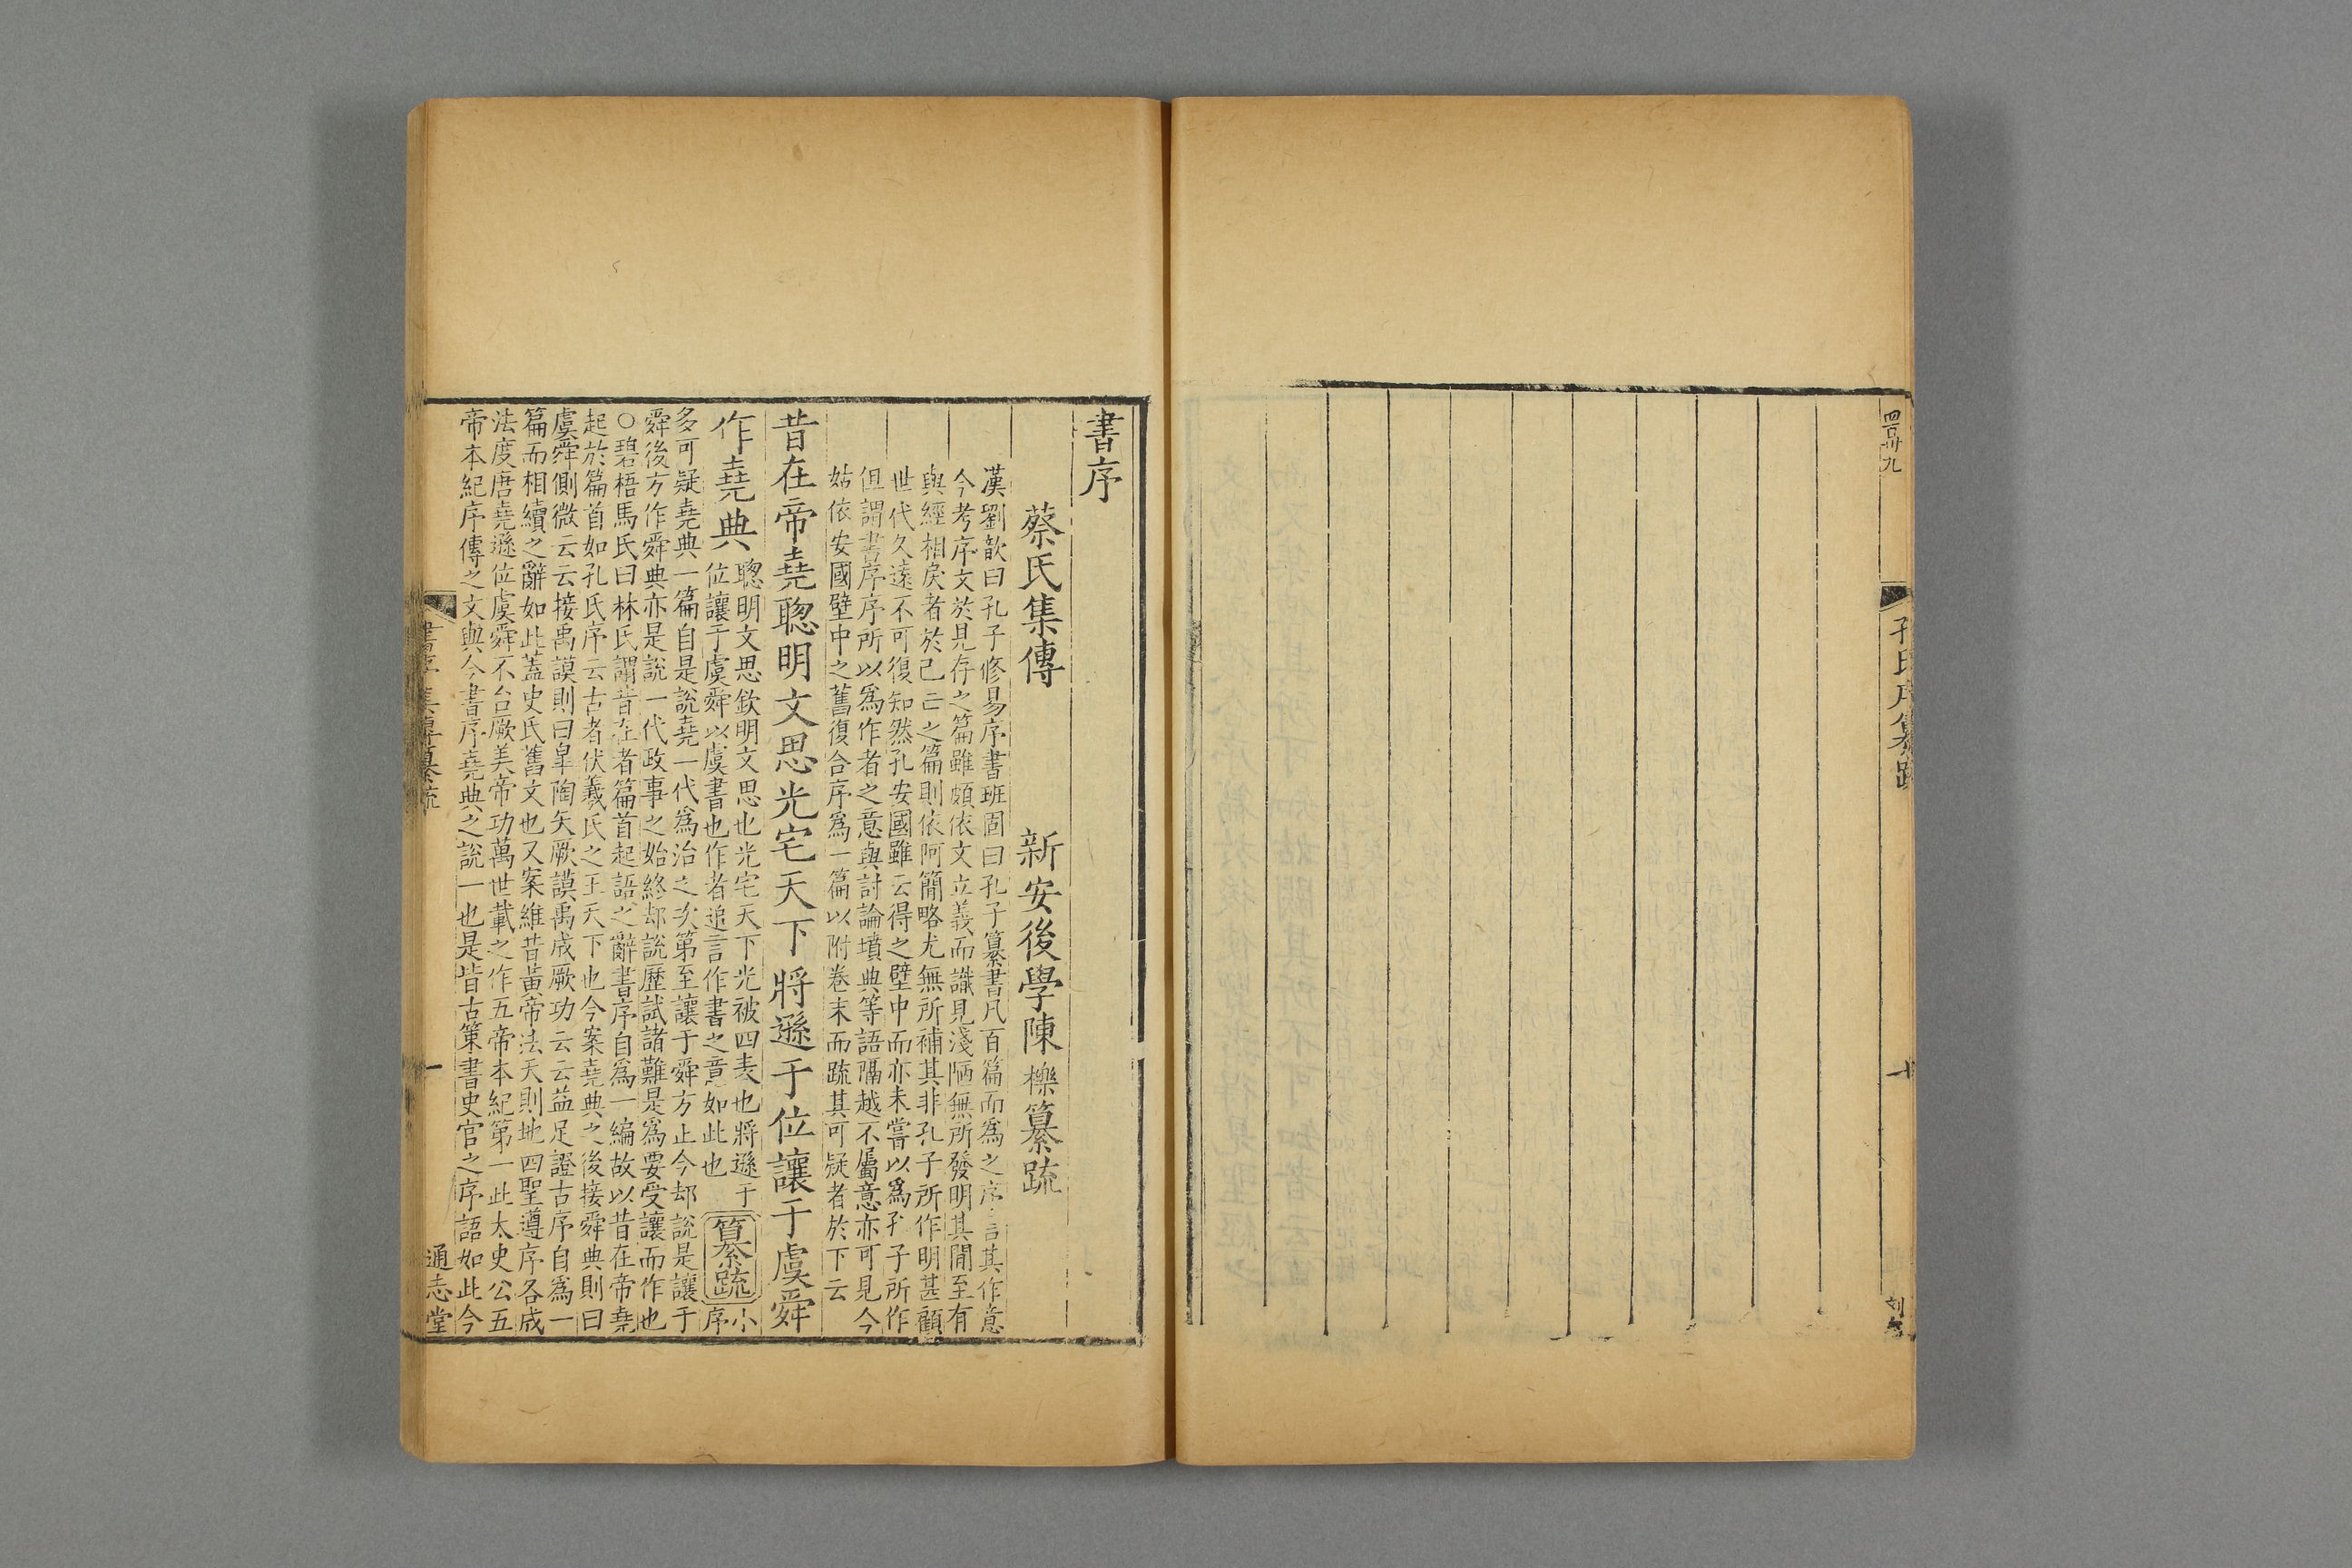 四百卅九
孔氏序纂疏
十
書序
蔡氏集傳　新安後學陳櫟纂疏
漢劉歆曰孔子修易序書班固曰孔子纂書凡百篇而爲之序言其作意
今考序文於見存之篇雖頗依文立義而識見淺陋無所發明其閒至有
與經相戾者於已亡之篇則依阿簡略尤無所補其非孔子所作明甚顧
世代久遠不可復知然孔安國雖云得之壁中而亦未嘗以爲孔子所作
但謂書序序所以爲作者之意與討論墳典等語隔越不屬意亦可見今
姑依安國壁中之舊復合序爲一篇以附卷末而疏其可疑者於下云
昔在帝堯聰明文思光宅天下將遜于位讓于虞舜
作堯典
聰明文思欽明文思也光宅天下光被四表也將遜于
位讓于虞舜以虞書也作者追言作書之意如此也
纂疏
小
序
多可疑堯典一篇自是說堯一代爲治之次第至讓于舜方止今却說是讓于
舜後方作舜典亦是說一代政事之始終却說歷試諸難是爲要受讓而作也
○碧梧馬氏曰林氏謂昔在者篇首起語之辭書序自爲一編故以昔在帝堯
起於篇首如孔氏序云古者伏羲氏之王天下也今案堯典之後接舜典則曰
虞舜側微云云接禹謨則曰皐陶矢厥謨禹成厥功云云益足證古序自爲一
篇而相續之辭如此蓋史氏舊文也又案維昔黃帝法天則地四聖遵序各成
法度唐堯遜位虞舜不台厥美帝功萬世載之作五帝本紀第一此太史公五
帝本紀序傳之文與今書序堯典之說一也是皆古策書史官之序語如此今
書序 集傳纂疏
一
通志堂